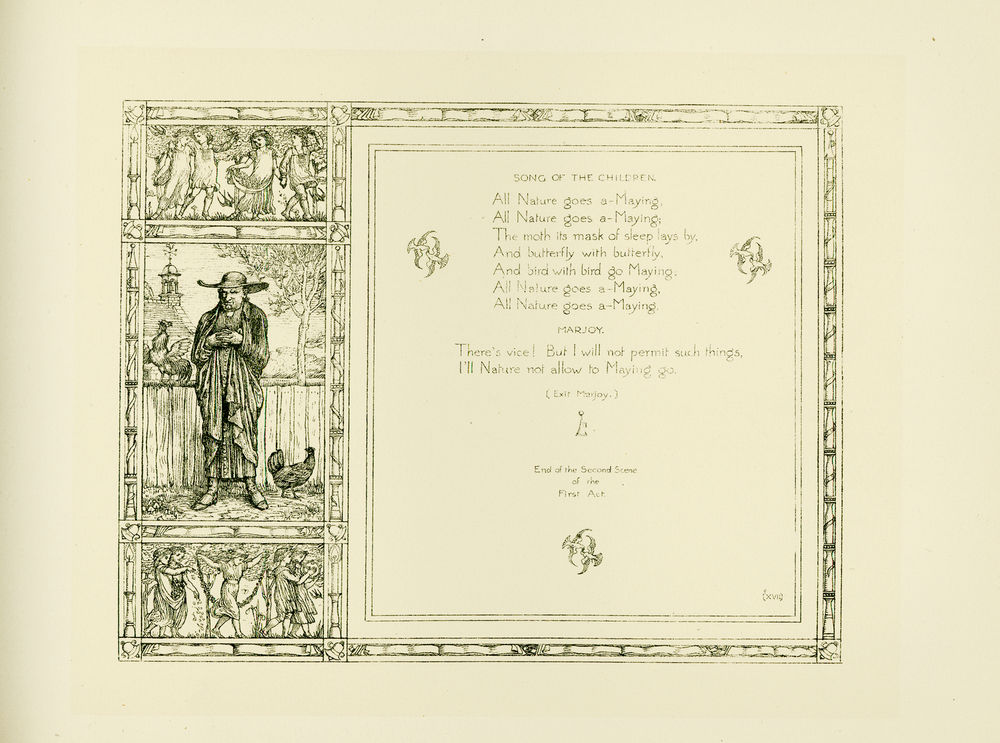 SONG OF THE CHILDREN.
All Nature goes a-Maying,
All Nature goes a-Maying;
The moth its mask of sleep lays by,
And butterfly with butterfly,
And bird with bird go Maying;
All Nature goes a-Maying,
All Nature goes a-Maying.
MARJOY.
There's vice! But I will not permit such things,
I'll Nature not allow to Maying go.
(Exit Marjoy.)
End of the Second Scene
of the
First Act.